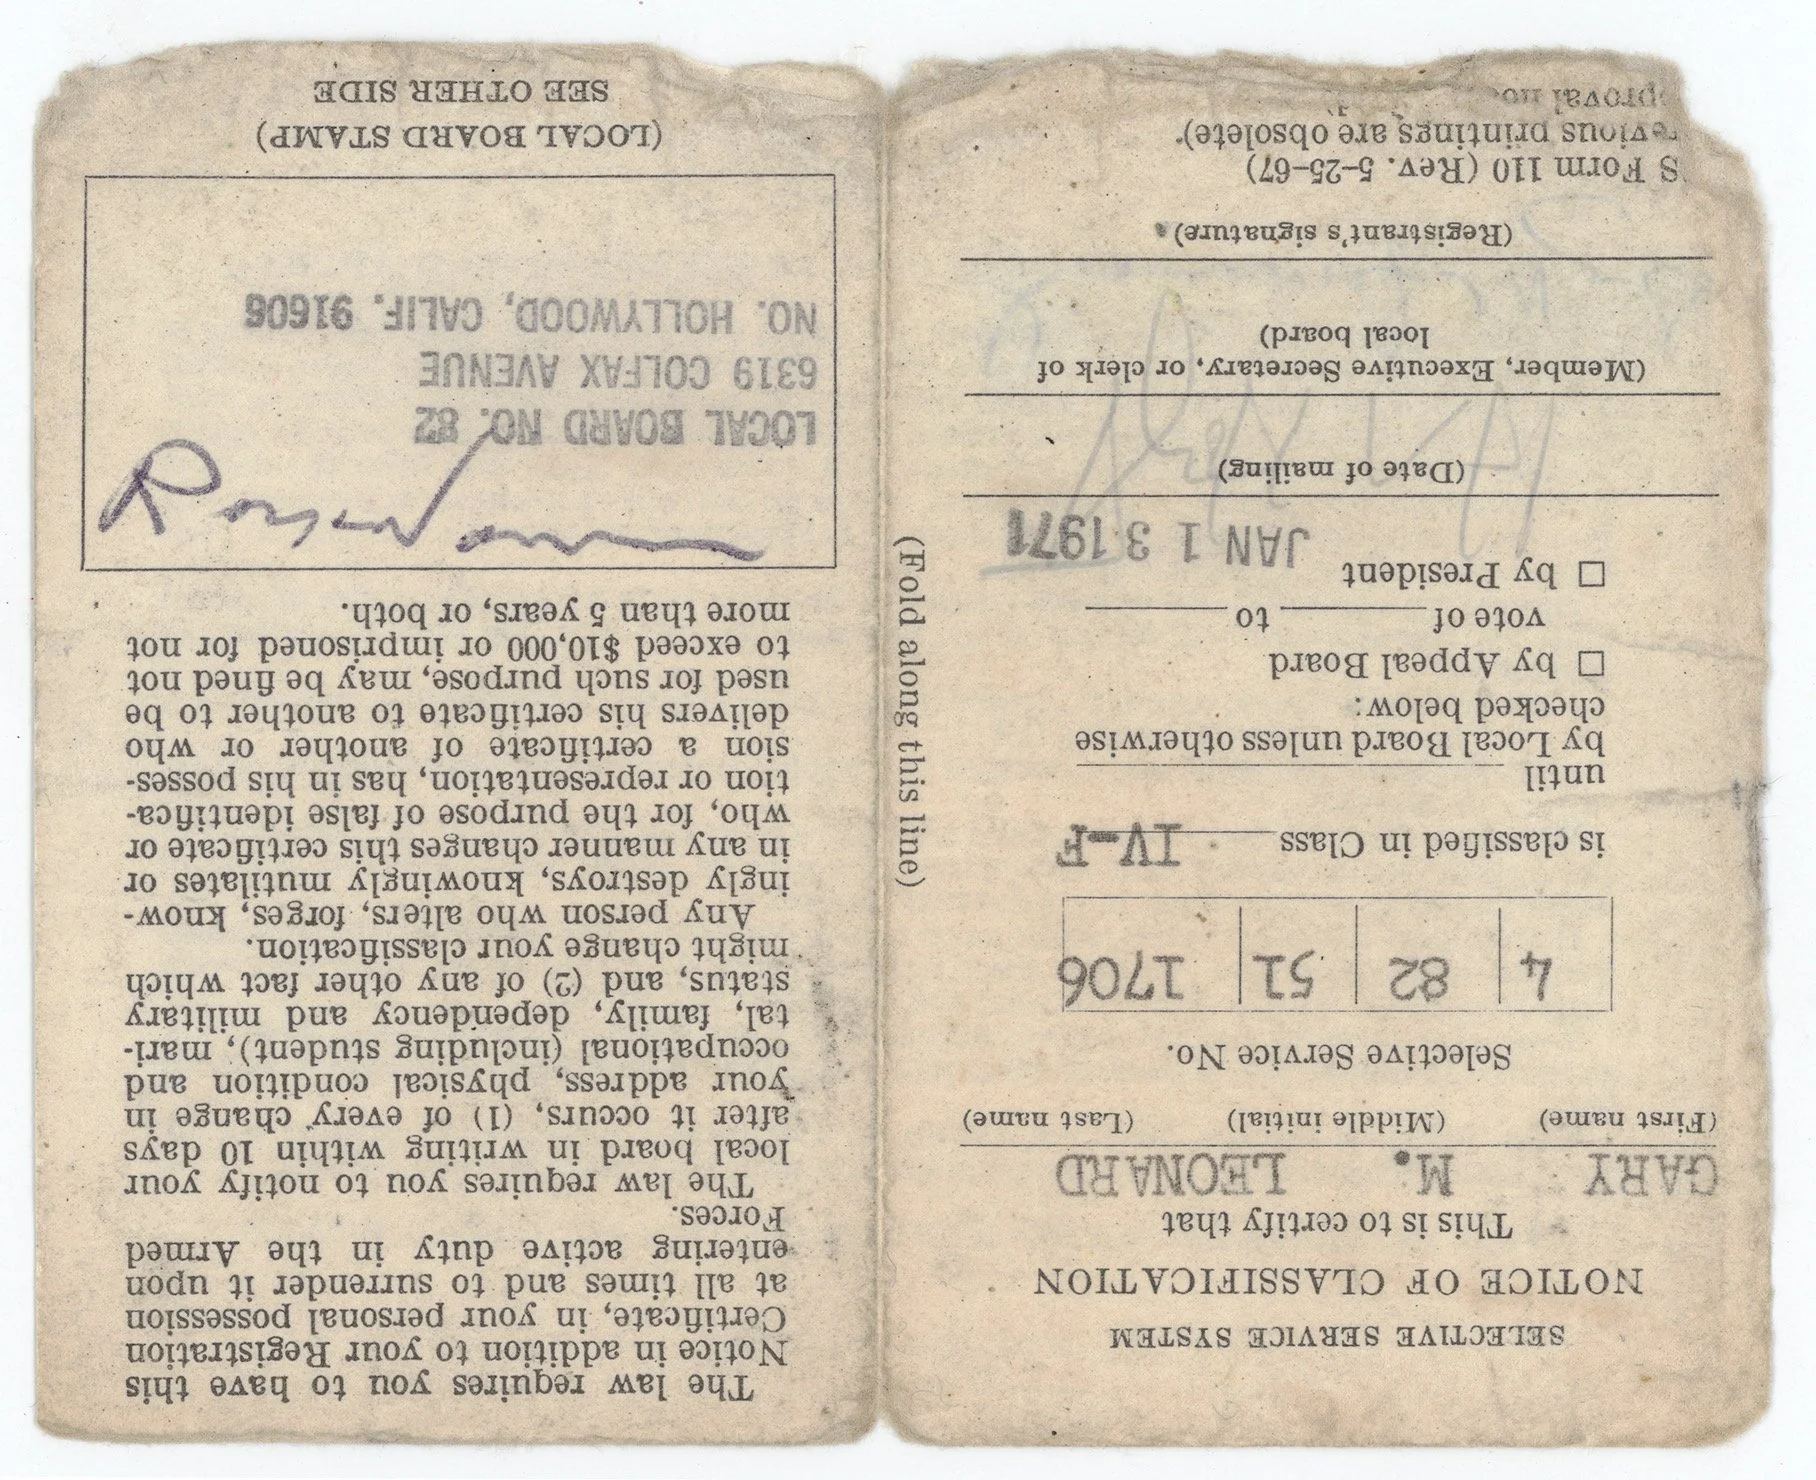 SELECTIVE SERVICE SYSTEM
NOTICE OF CLASSIFICATION
This is to certify that
GARY M. LEONARD
(First name) (Middle initial) (Last name)
Selective Service No.
4 82 51 1706
is classified in Class IV-F
until
by Local Board unless otherwise
checked below:
☐ by Appeal Board
vote of ______ to ______
☐ by President
JAN 13 1971
(Date of mailing)
(Member, Executive Secretary, or clerk of
local board)
(Registrant's signature)
S Form 110 (Rev. 5-25-67)
evious printings are obsolete)
proval
(Fold along this line)
The law requires you to have this
Notice in addition to your Registration
Certificate, in your personal possession
at all times and to surrender it upon
entering active duty in the Armed
Forces.
The law requires you to notify your
local board in writing within 10 days
after it occurs, (1) of every change in
your address, physical condition and
occupational (including student), mari-
tal, family, dependency and military
status, and (2) of any other fact which
might change your classification.
Any person who alters, forges, know-
ingly destroys, knowingly mutilates or
in any manner changes this certificate or
who, for the purpose of false identifica-
tion or representation, has in his posses-
sion a certificate of another or who
delivers his certificate to another to be
used for such purpose, may be fined not
to exceed $10,000 or imprisoned for not
more than 5 years, or both.
LOCAL BOARD NO. 82
6319 COLFAX AVENUE
NO. HOLLYWOOD, CALIF. 91606
(LOCAL BOARD STAMP)
SEE OTHER SIDE